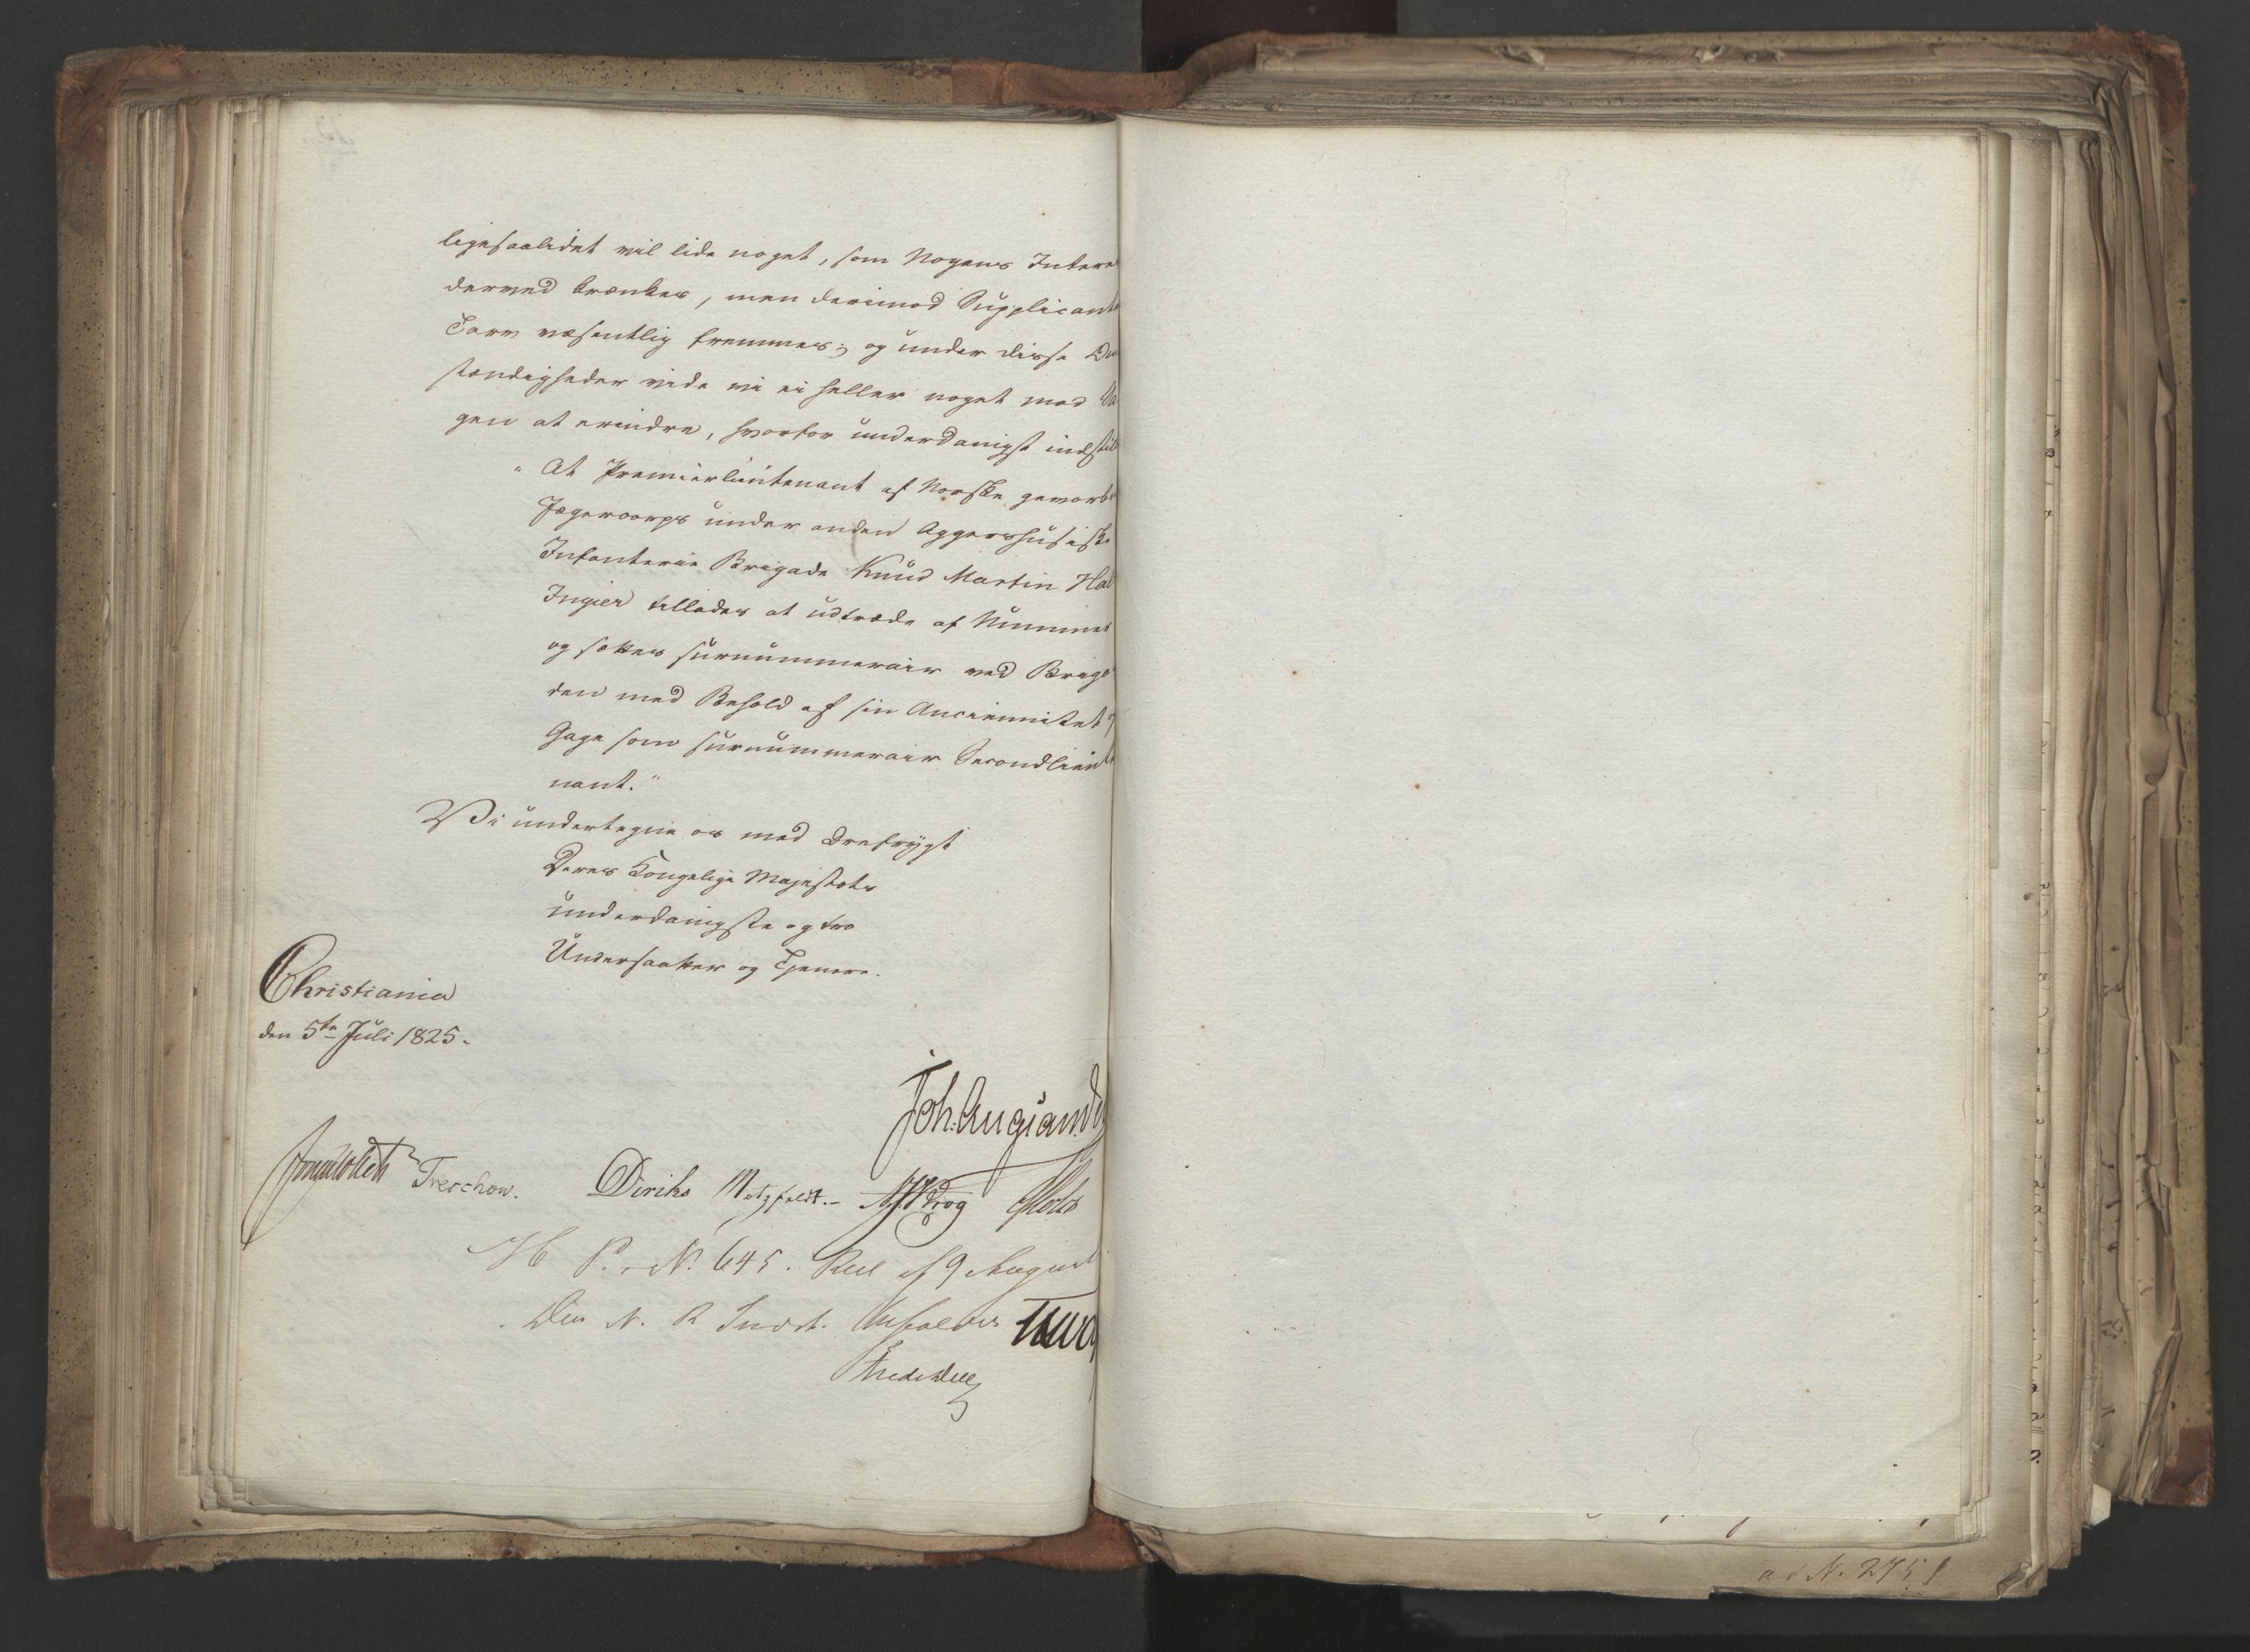 ligesaalidet vil lide noget, som Nogens Intere
derved krænkes, men derimod Supplicant
Tarv væsentlig fremmes; og under disse Om
stændigheder vide vi ei heller noget mod Sa
gen at erindre, hvorfor underdanigst indstil
"At Premierlieutenant af Norske gevorbe
Jægercorps under anden Aggershusiske
Infanterie Brigade Knud Martin Hal
Ingier tillades at udtræde af Nummer
og sættes surnummerair ved Briga
den med Behold af sin Anciennitet og
Gage som surnummerair Secondlieute
nant."
Vi undertegne os med Ærefrygt
Deres Kongelige Majestæts
underdanigste og tro
Undersaatter og Tjenere.
Christiania
den 5te Juli 1825.
Joh. Aug. Sand
Treschow. Diriks Motzfeldt. Krog Holst
N. 645. Res af 9 August
Den N. R Indst. bifaldes
ad N. 2751